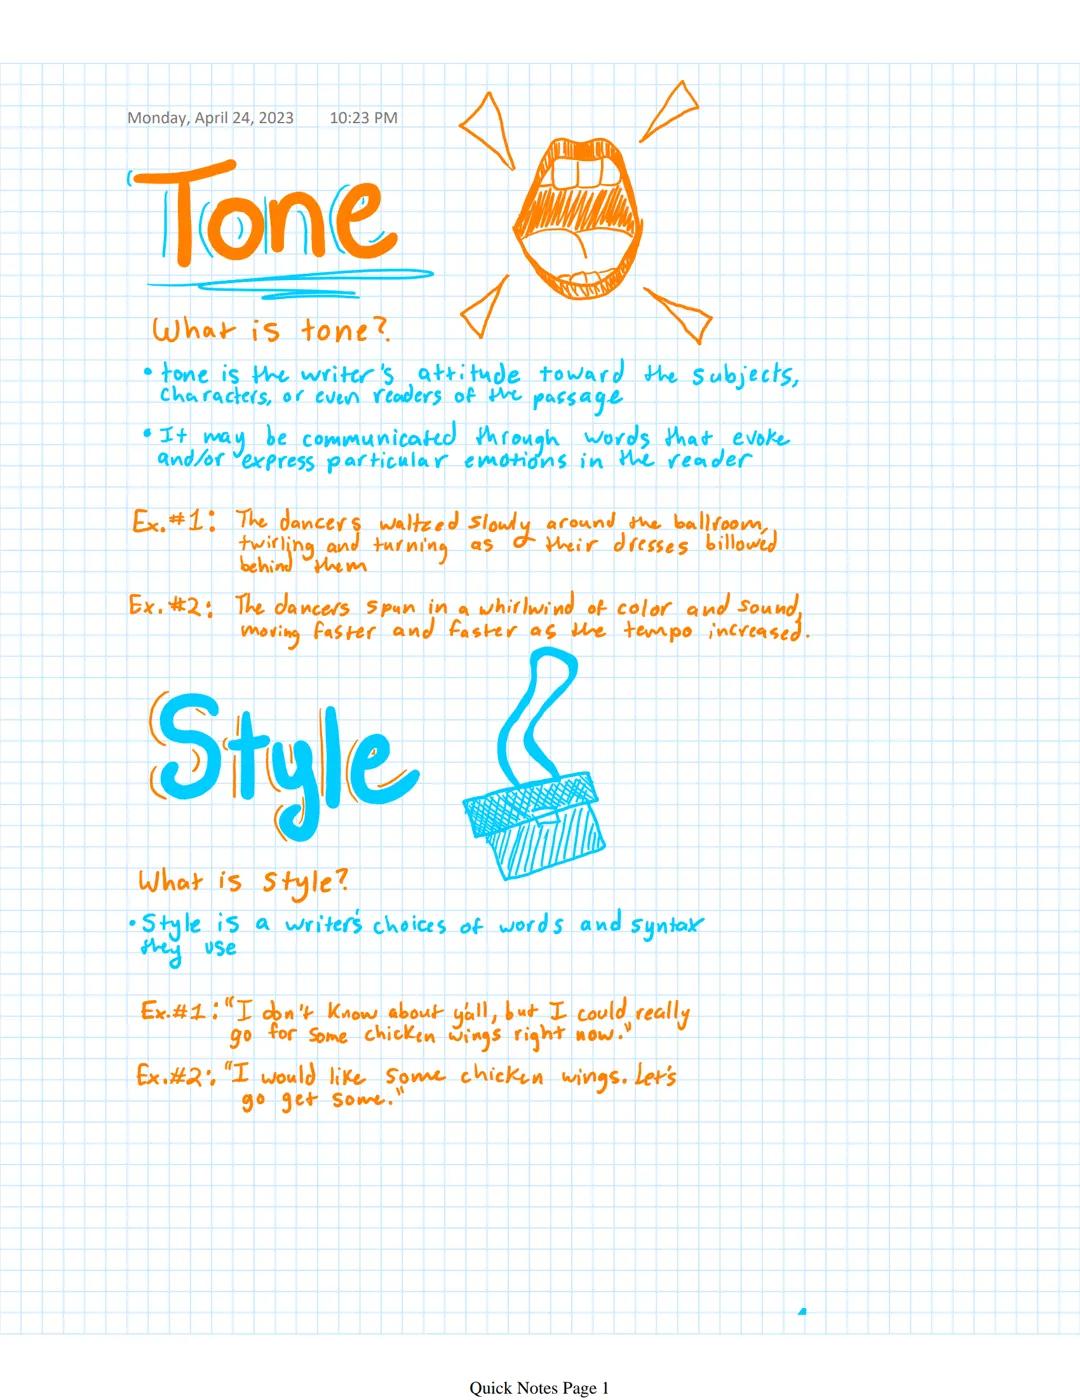 Monday, April 24, 2023 10:23 PM
Tone
What is tone?
• tone is the writer's attitude toward the subjects,
characters, or even readers of the passage
• It may be communicated through words that evoke
and/or express particular emotions in the reader
Ex. #1: The dancers waltzed slowly around the ballroom,
twirling and turning as their dresses billowed
behind them
Ex. #2: The dancers spun in a whirlwind of color and sound,
moving faster and faster as the tempo increased.
Style
What is style?
• Style is a writer's choices of words and syntax
they use
Ex. #1: "I don't know about y'all, but I could really
go for some chicken wings right now."
Ex. #2: "I would like some chicken wings. Let's
go get some."
Quick Notes Page 1